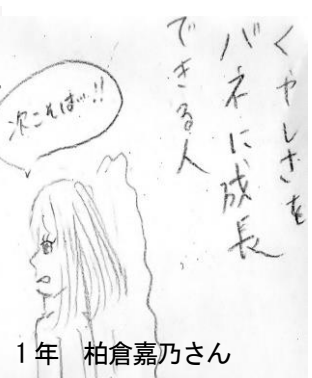 くやしさを
バネに成長
できる人
次こそは…!!
1年 柏倉嘉乃さん